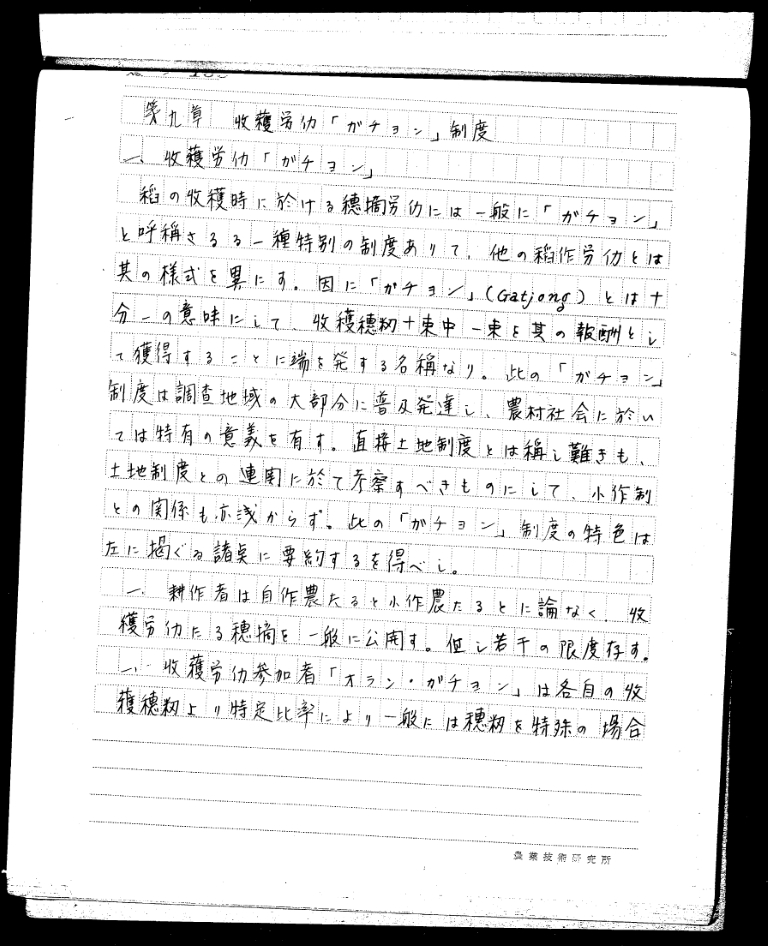 第九章 收穫労仂「ガチョン」制度
一、收穫労仂「ガチョン」
稻の收穫時に於ける穂摘労仂には一般に「ガチョン」
と呼稱さるる一種特別の制度ありて、他の稻作労仂とは
其の様式を異にす。因に「ガチョン」(Gatjong)とは十
分一の意味にして、收穫穂籾十束中一束を其の報酬とし
て獲得することに端を発する名稱なり。此の「ガチョン」
制度は調査地域の大部分に普及発達し、農村社会に於い
ては特有の意義を有す。直接土地制度とは稱し難きも、
土地制度との連関に於て考察すべきものにして、小作制
との関係も亦浅からず。此の「ガチョン」制度の特色は
左に掲ぐる諸点に要約するを得べし。
一、耕作者は自作農たると小作農たるとに論なく、收
穫労仂たる穂摘を一般に公開す。但し若干の限度存す。
二、收穫労仂参加者「オラン・ガチョン」は各自の收
穫穂籾より特定比率により一般には穂籾を特殊の場合
農業技術研究所